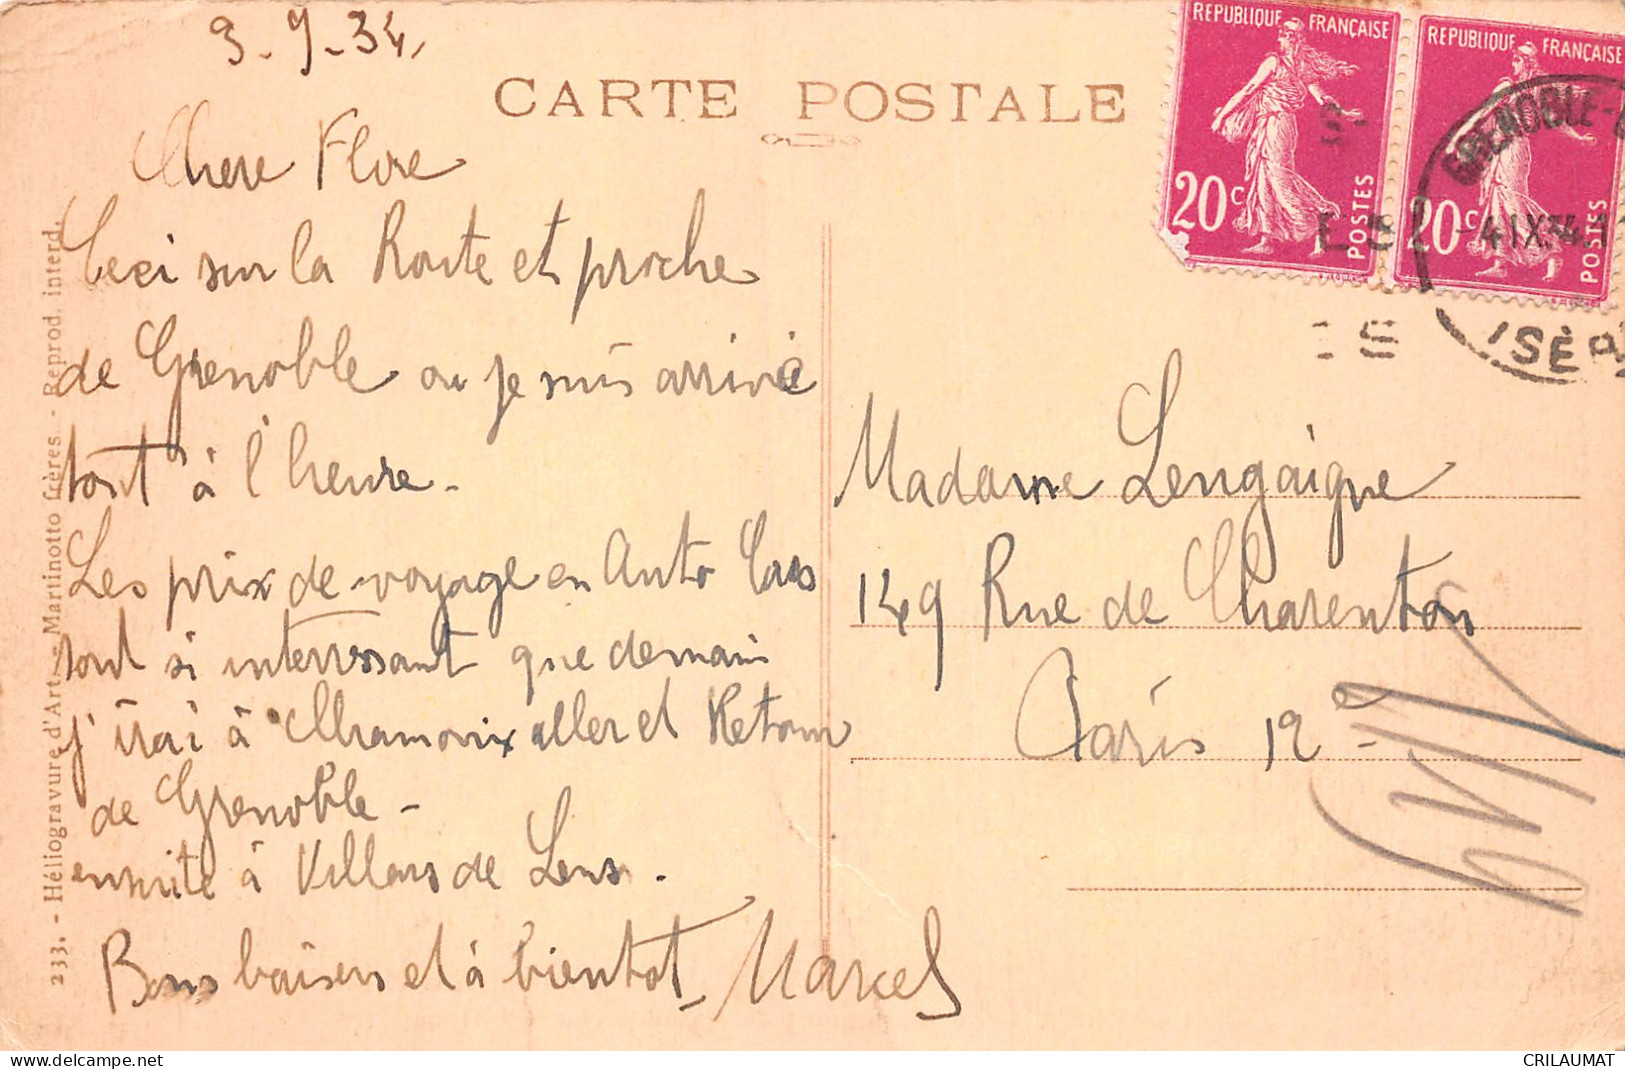 3-9-34,
CARTE POSTALE
Chere Flore
Ceci sur la Route et proche
de Grenoble ou je suis arrivé
tout à l'heure.
Les prix de voyage en Auto Cars
sont si interessant que demain
j'irai à Chamonix aller et Retour
de Grenoble -
ensuite à Villars de Lens.
Bons baisers et à bientot - Marcel
233. - Héliogravure d'Art - Martinotto frères. - Reprod. interd.
REPUBLIQUE FRANÇAISE
20c POSTES
REPUBLIQUE FRANÇAISE
20c POSTES
GRENOBLE
-4 IX.34
ISÈRE
Madame Lengaigne
149 Rue de Charenton
Paris 12e
www.delcampe.net
CRILAUMAT